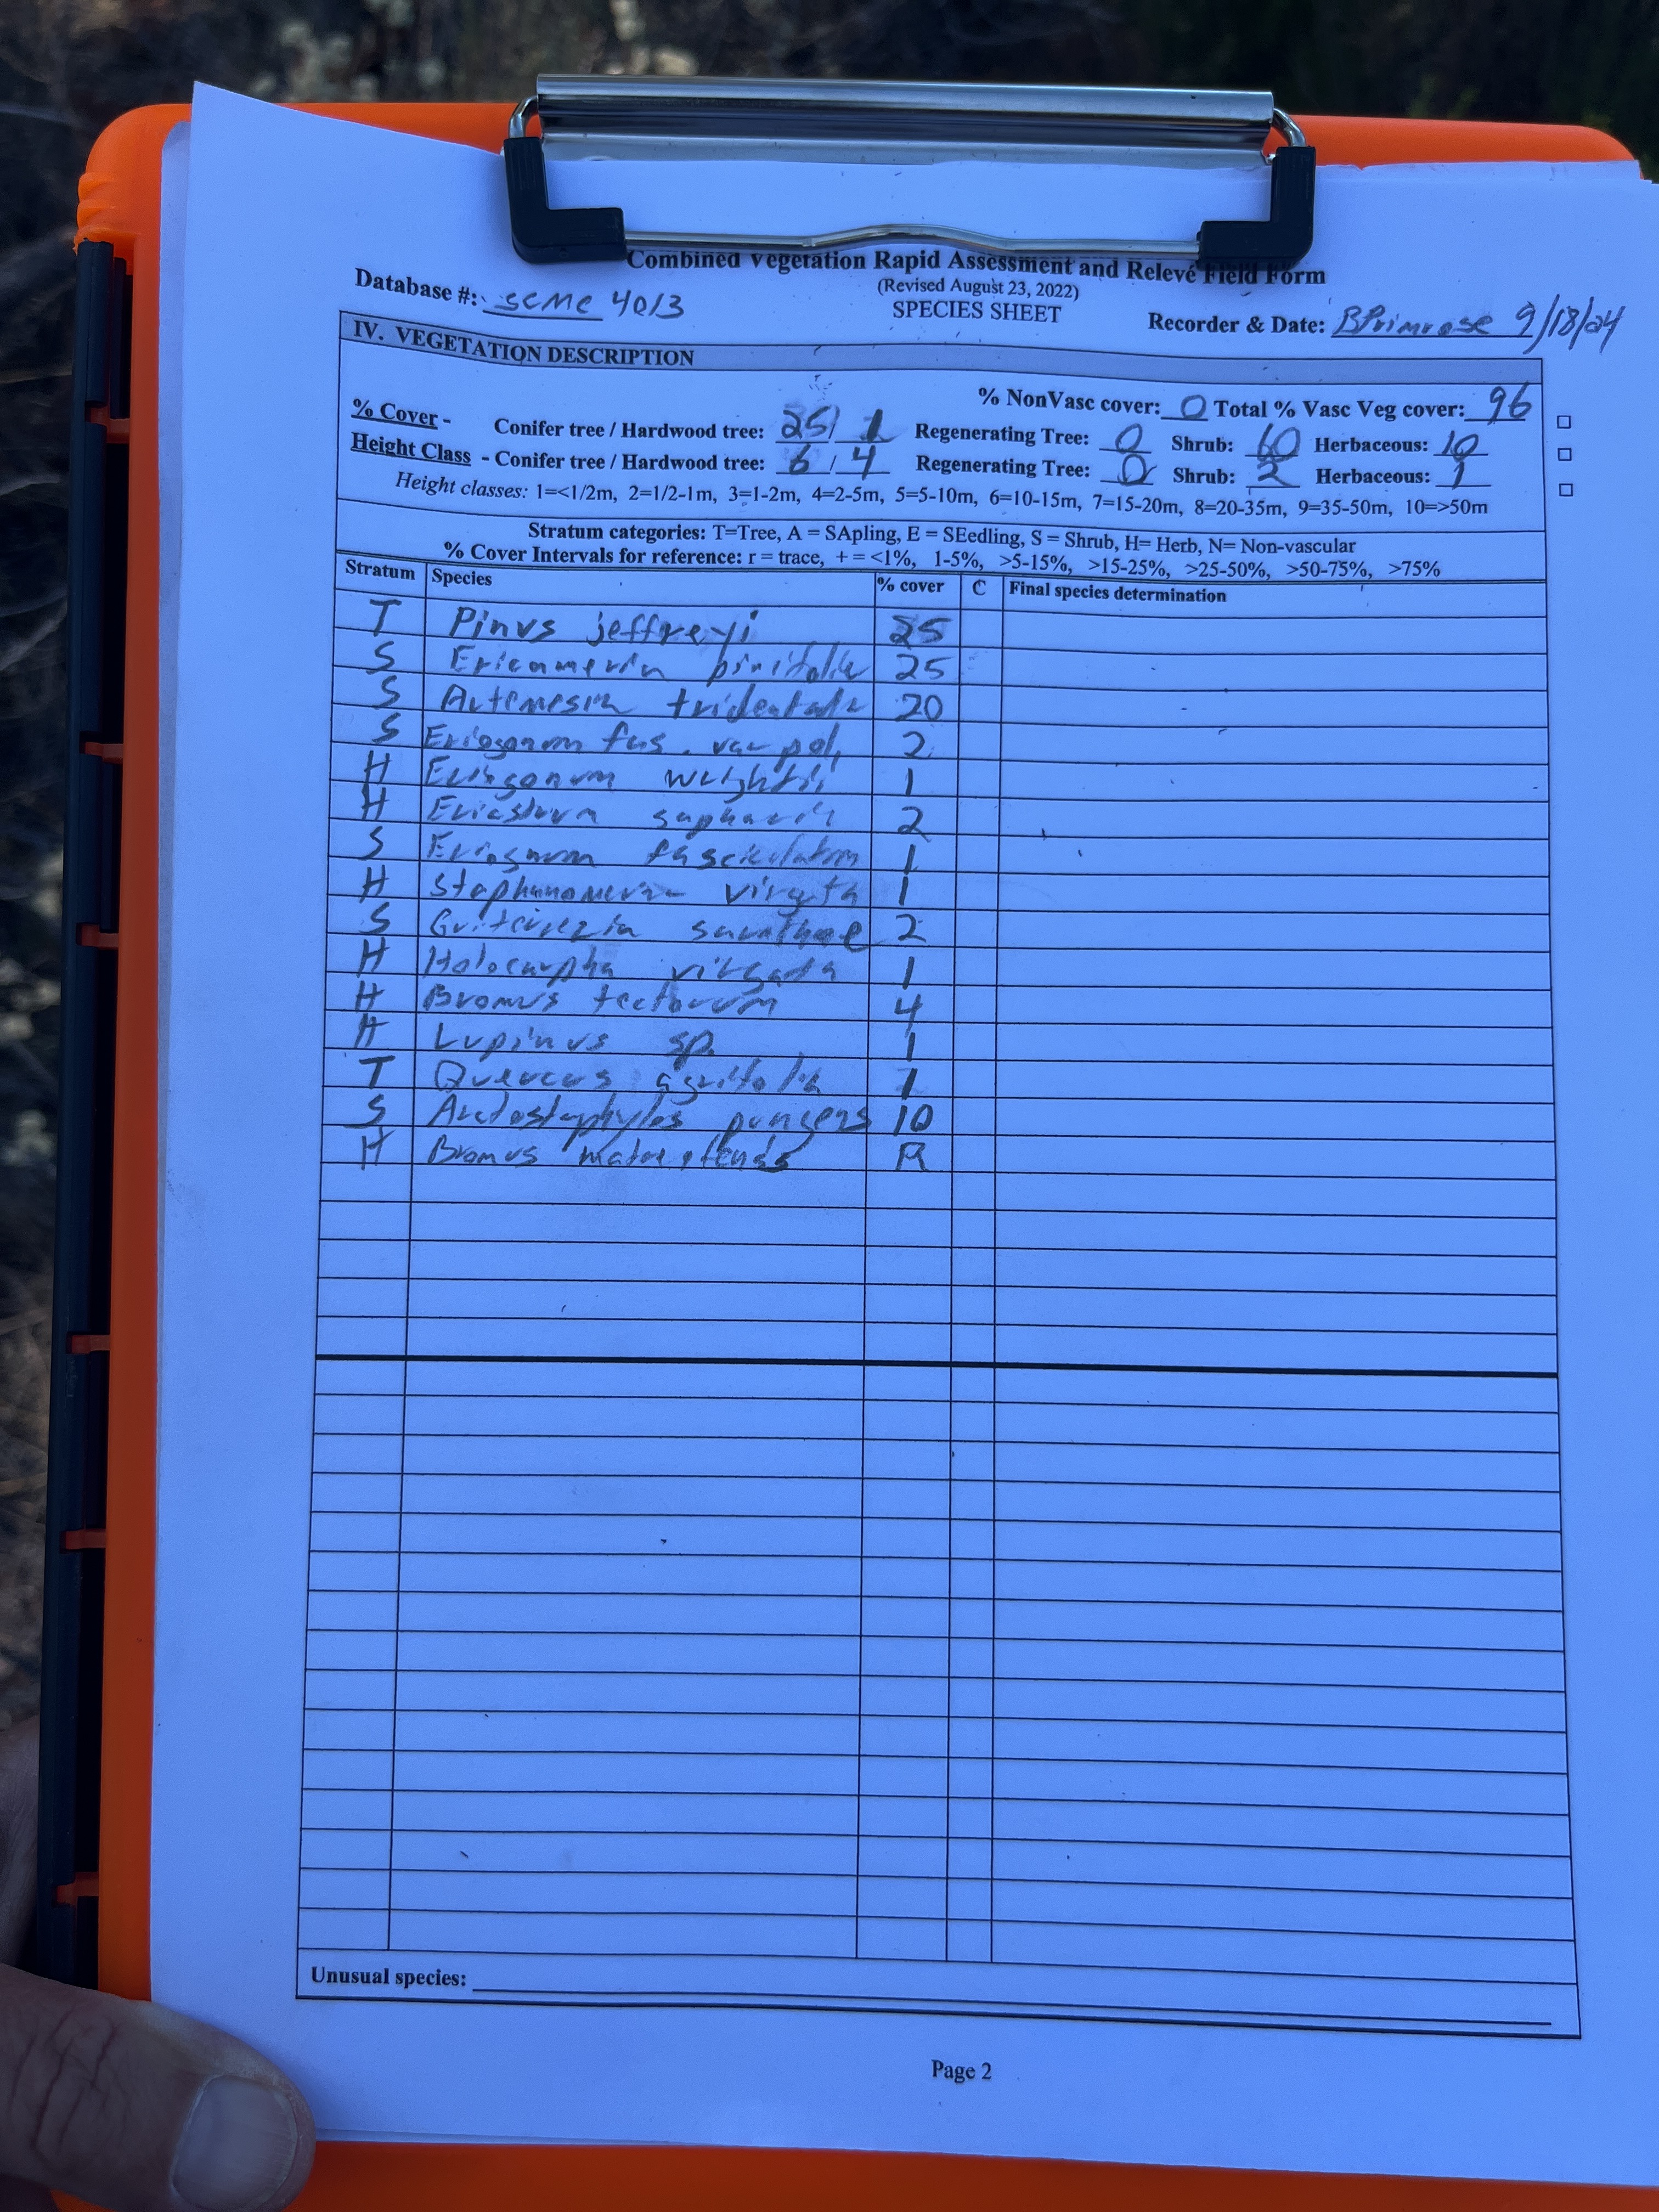 Combined Vegetation Rapid Assessment and Relevé Field Form
(Revised August 23, 2022)
Database #: SCMC 4013 SPECIES SHEET Recorder & Date: BPrimrose 9/18/24
IV. VEGETATION DESCRIPTION
% NonVasc cover: 0 Total % Vasc Veg cover: 96
% Cover - Conifer tree / Hardwood tree: 25 / 1 Regenerating Tree: 0 Shrub: 60 Herbaceous: 10
Height Class - Conifer tree / Hardwood tree: 6 / 4 Regenerating Tree: 0 Shrub: 2 Herbaceous: 1
Height classes: 1=<1/2m, 2=1/2-1m, 3=1-2m, 4=2-5m, 5=5-10m, 6=10-15m, 7=15-20m, 8=20-35m, 9=35-50m, 10=>50m
Stratum categories: T=Tree, A = SApling, E = SEedling, S = Shrub, H= Herb, N= Non-vascular
% Cover Intervals for reference: r = trace, + = <1%, 1-5%, >5-15%, >15-25%, >25-50%, >50-75%, >75%
Stratum Species % cover C Final species determination
T Pinus jeffreyi 25
S Ericameria pinifolia 25
S Artemesia tridentata 20
S Eriogonum fas. var pol. 2
H Eriogonum wrightii 1
H Eriastrum 2
S fasciculatum 1
H Stephanomeria virgata 1
S sarothrae 2
H Holocarpha virgata 1
H Bromus tectorum 4
H Lupinus sp. 1
T Quercus agrifolia 1
S Arctostaphylos pungens 10
H Bromus R
Unusual species:
Page 2